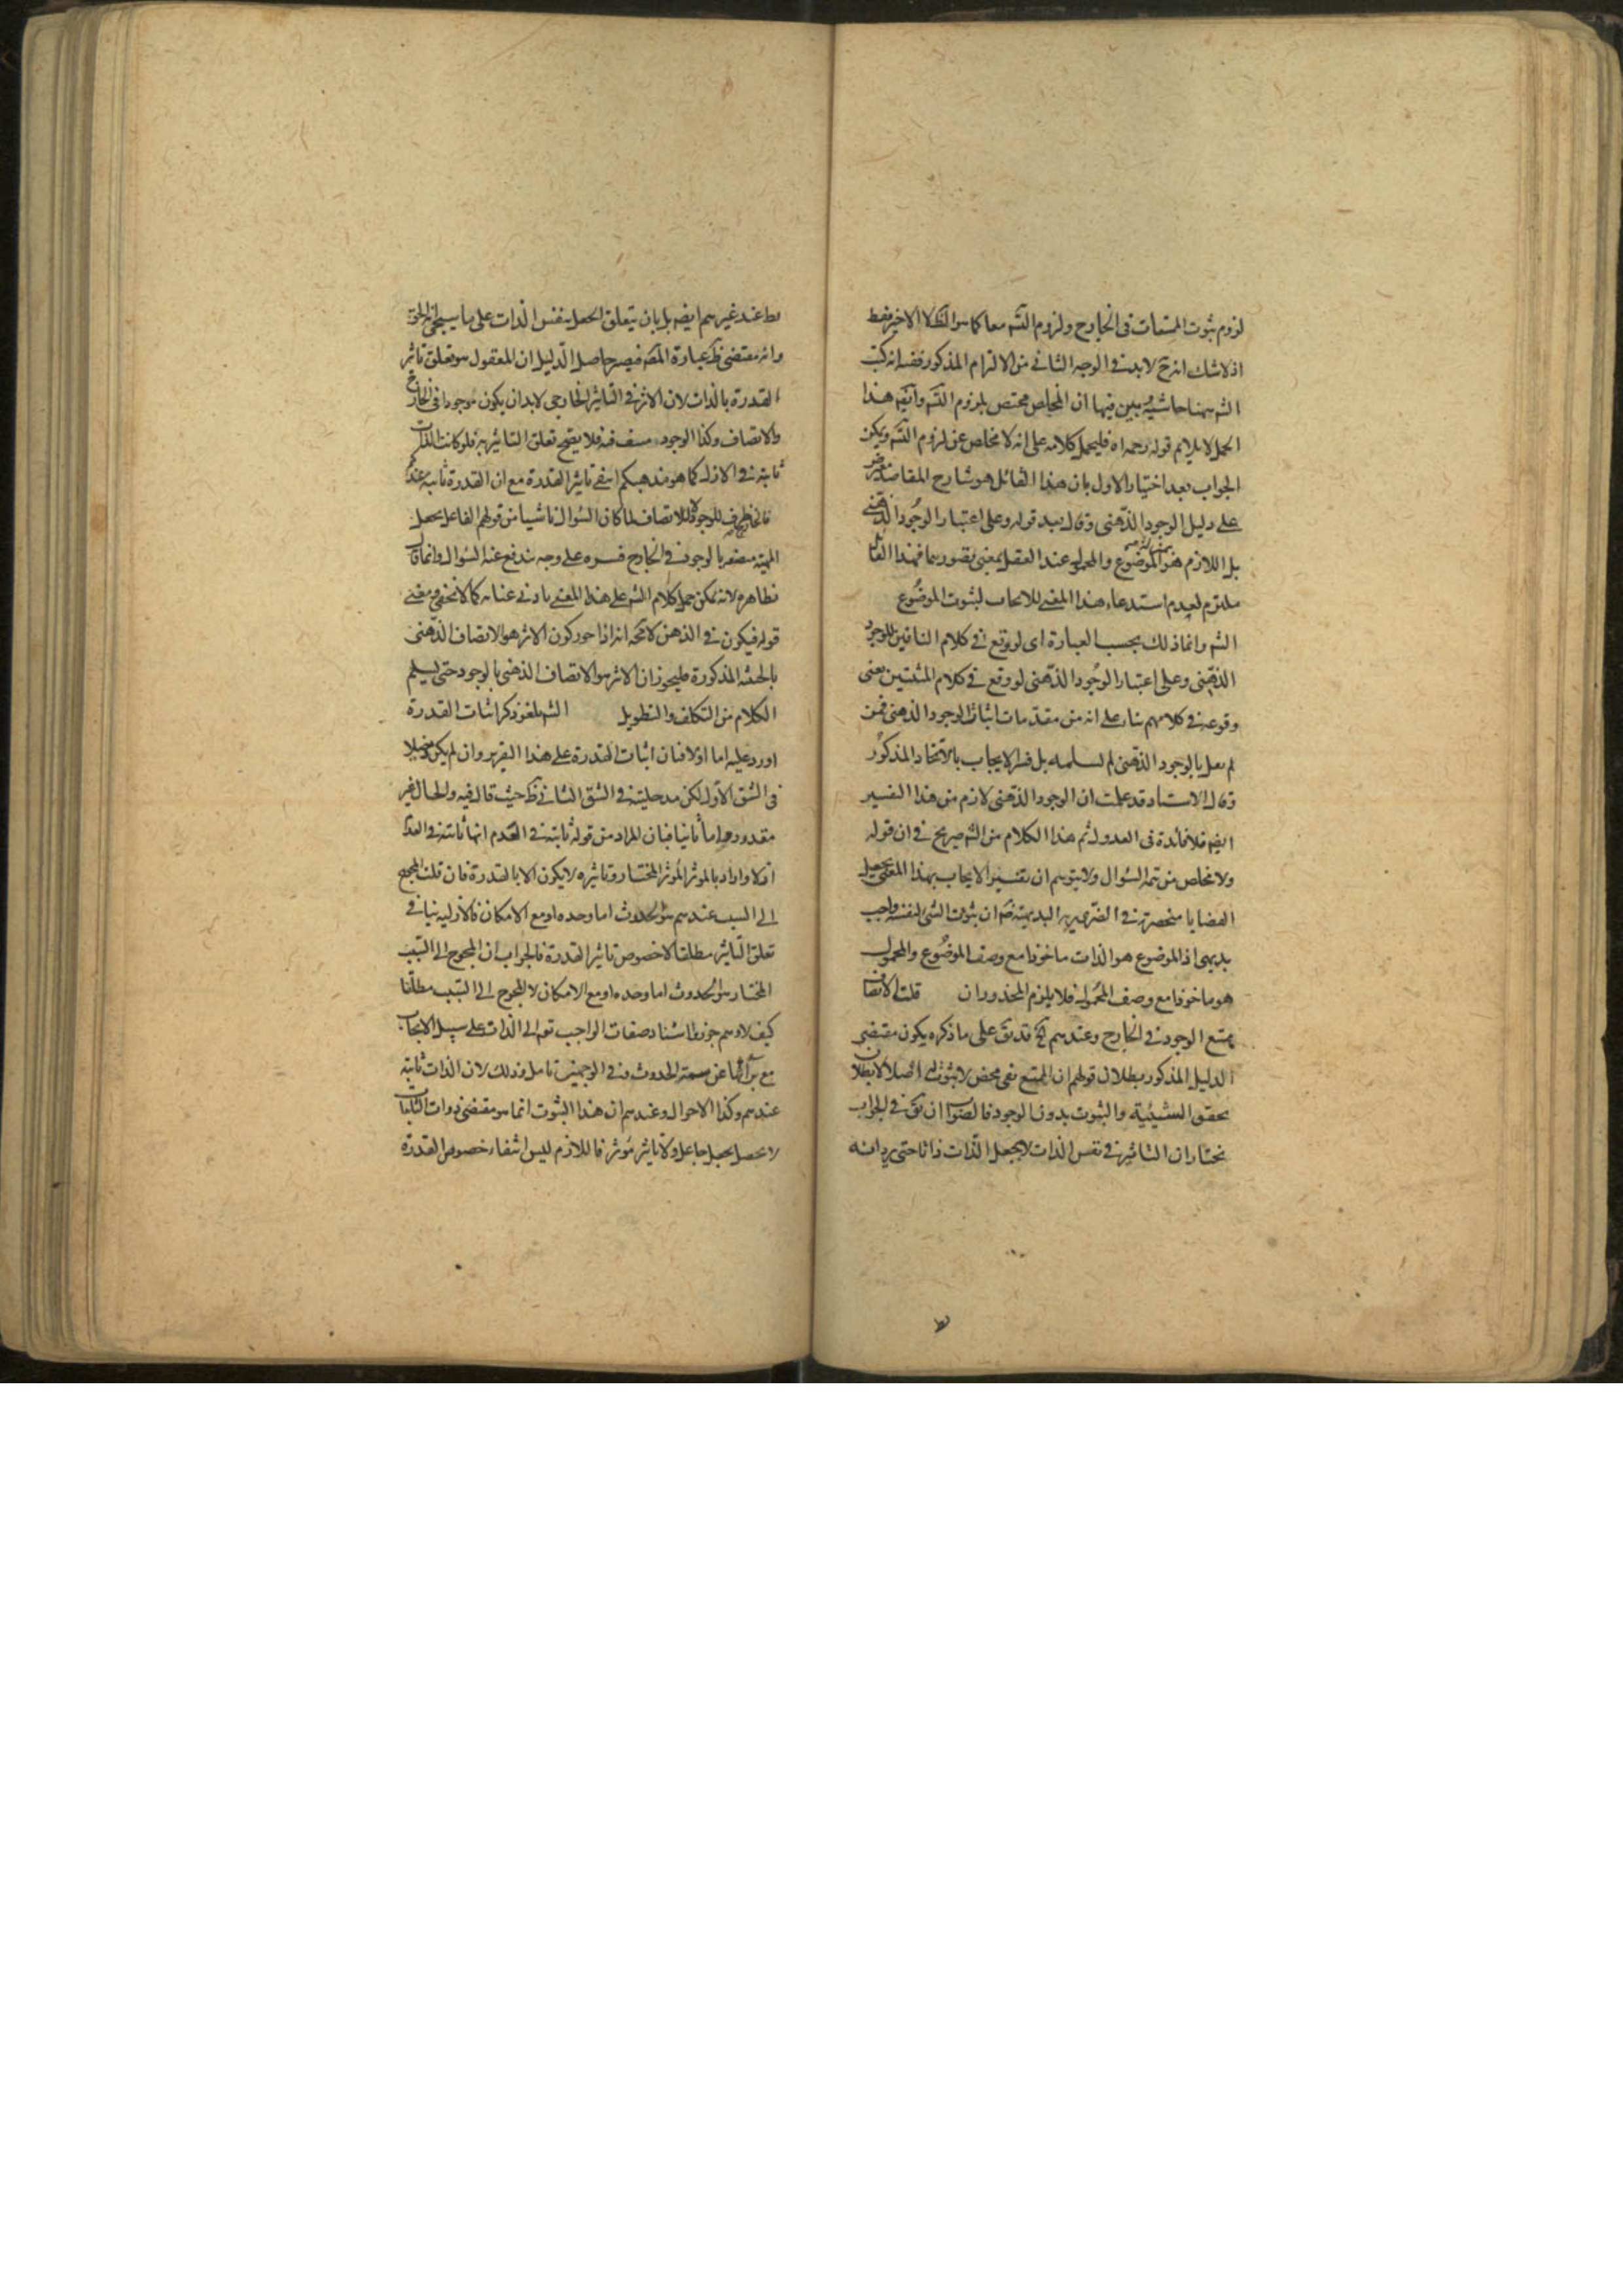 لزوم ثبوت الممتنعات فى الخارج ولزوم التسه معا كما هو الظ لا الاخير فقط
اذ لا شك انه ح لا بد فى الوجه الثانى من الالتزام المذكور ففيه انه كتب
الشه ههنا حاشية وبين فيها ان المخلص مختص بلزوم التسه وايضه هذا
الحمل لا يلايم قوله رحمه اه فليحمل كلامه على انه لا مخلص عن لزوم التسه ويمكن
الجواب بعد اختيار الاول بان هذا القائل هو شارح المقاصد
على دليل الوجود الذهنى وقال بعد قوله وعلى اعتبار الوجود الذهنى
بل اللازم هو الموضوع والمحمول عند العقل بمعنى تصورهما فهذا القائل
ملتزم لعدم استدعاء هذا المعنى للايجاب لثبوت الموضوع
الشه وانما ذلك بحسب العبارة اى لو وقع فى كلام النافين للوجود
الذهنى وعلى اعتبار الوجود الذهنى لو وقع فى كلام المثبتين يعنى
وقوعه فى كلامهم بناء على انه من مقدمات اثبات الوجود الذهنى فمن
لم يقل بالوجود الذهنى لم يسلمه بل فسر الايجاب بالاتحاد المذكور
وقال الاستاد قد علمت ان الوجود الذهنى لازم من هذا التفسير
ايضه فلا فائدة فى العدول ثم هذا الكلام من الشه صريح فى ان قوله
ولا مخلص من تتمة السؤال ولا يتوهم ان تفسير الايجاب بهذا المعنى يجعل
القضايا منحصرة فى الضرورية البديهية ان ثبوت الشى لنفسه واجب
بديهى اذ الموضوع هو الذات ماخوذا مع وصف الموضوع والمحمول
هو ماخوذا مع وصف المحمول فلا يلزم المحذوران قلت الاتصاف
يمتنع الوجود فى الخارج وعندهم ح قد يق على ما ذكره يكون مقتضى
الدليل المذكور بطلان قولهم ان الممتنع نفى محض لا ثبوت له اصلا لا بطلان
تحقق الشيئية والثبوت بدون الوجود فالصواب ان يق فى الجواب
نختار ان التاثير فى نفس الذات لا بجعل الذات ذاتا حتى يرد انه
بط عند غيرهم ايضه بل بان يتعلق الجعل بنفس الذات على ما سيجئ انه الحق
وانه مقتضى ظ عبارة المصه فيصير حاصل الدليل ان المعقول هو تعلق تاثير
القدرة بالذات لان الاثر فى التاثير الخارجى لا بد ان يكون موجودا فى الخارج
والاتصاف وكذا الوجود منتف فيه فلا يصح تعلق التاثير به فلو كانت الذات
ثابتة فى الازل كما هو مذهبكم انتفى تاثير القدرة مع ان القدرة ثابتة عندكم
فالخارج ظرف للوجود لا للاتصاف لما كان السؤال ناشيا من قولهم الفاعل يجعل
المهية متصفة بالوجود فى الخارج فسره على وجه يندفع عنه السؤال وانما قال
بظاهره لانه يمكن حمل كلام الشه على هذا المعنى بادنى عناية كما لا يخفى ومعنى
قوله فيكون فى الذهن لا يتجه انه اذا جوز كون الاثر هو الاتصاف الذهنى
بالحيثية المذكورة فليجوز ان الاثر هو الاتصاف الذهنى بالوجود حتى يسلم
الكلام من التكلف والتطويل الشه يلغو ذكر اثبات القدرة
اورد عليه اما اولا فبان اثبات القدرة على هذا التقرير وان لم يكن دخيلا
فى الشق الاول لكن مدخليته فى الشق الثانى ظ حيث قال فيه والحال غير
مقدور واما ثانيا فبان المراد من قوله ثابتة فى العدم انها ثابتة فى العدم
ازلا واراد بالموثر الموثر المختار وتاثيره لا يكون الا بالقدرة فان قلت المحوج
الى السبب عندهم هو الحدوث اما وحده او مع الامكان فالازلية ينافى
تعلق التاثير مطلقا لا خصوص تاثير القدرة فالجواب ان المحوج الى السبب
المختار هو الحدوث اما وحده او مع الامكان لا المحوج الى السبب مطلقا
كيف لا وهم جوزوا استناد صفات الواجب تعه الى الذات على سبيل الايجاب
مع برائتها عن سمة الحدوث وفى الوجهين تامل وذلك لان الذات ثابتة
عندهم وكذا الاحوال وعندهم ان هذا الثبوت انما هو مقتضى ذوات الثابتات
لا يحصل بجعل جاعل ولا تاثير موثر فاللازم ليس انتفاء خصوص القدرة